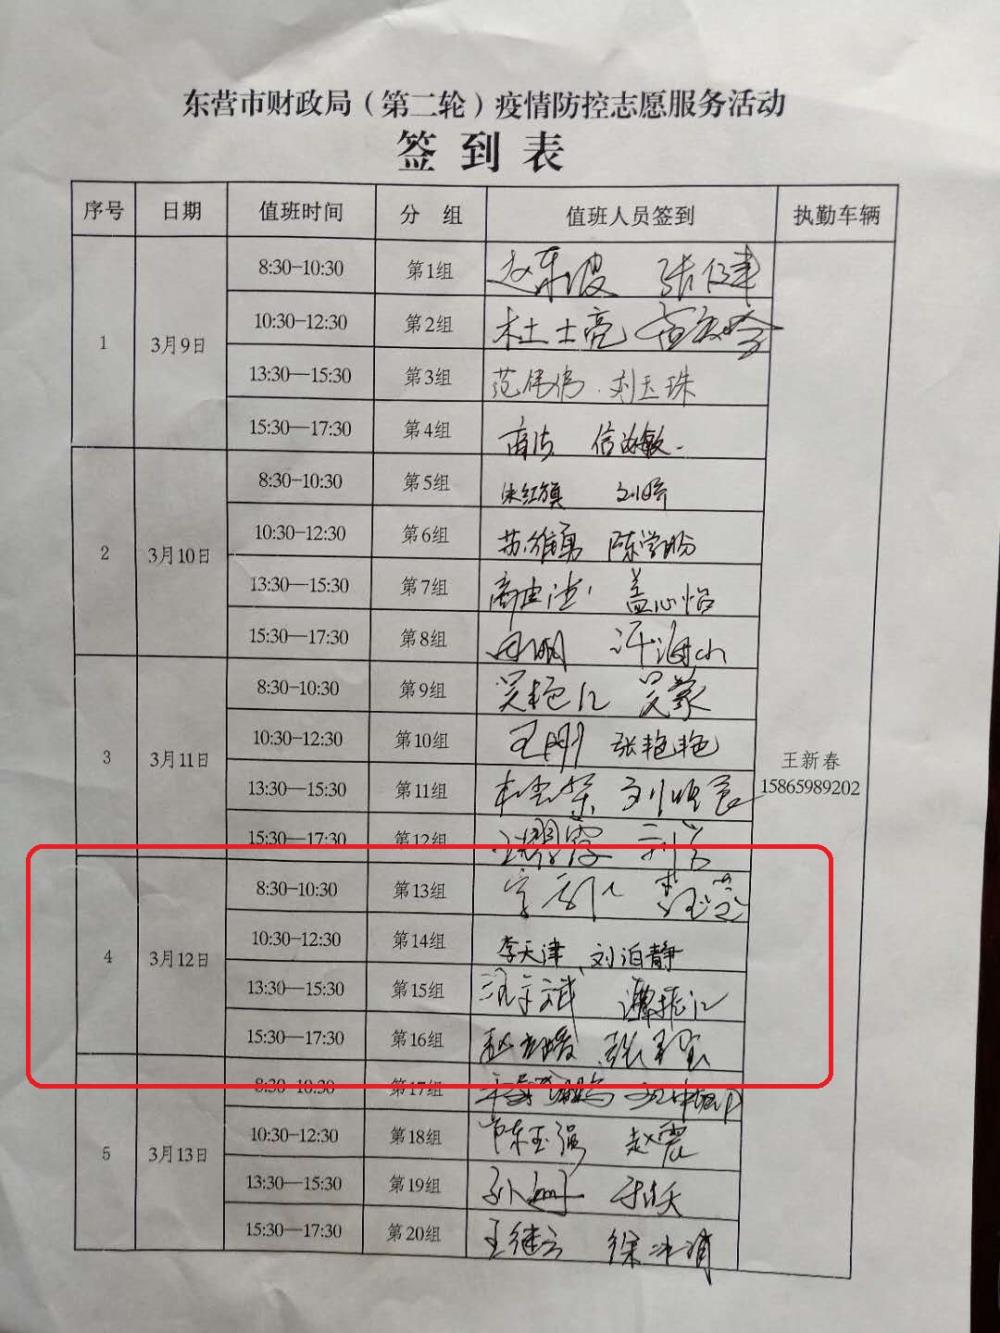 东营市财政局（第二轮）疫情防控志愿服务活动
签到表
序号 日期 值班时间 分 组 值班人员签到 执勤车辆
1 3月9日
8:30-10:30 第1组 赵东波 张健
10:30-12:30 第2组 杜士亮
13:30—15:30 第3组 范伟伟 刘玉珠
15:30—17:30 第4组 信海敏
2 3月10日
8:30-10:30 第5组 宋红旗 刘晓
10:30-12:30 第6组 苏维勇 陈学盼
13:30—15:30 第7组 盖心怡
15:30-17:30 第8组
3 3月11日
8:30-10:30 第9组 吴艳红 吴蒙
10:30-12:30 第10组 王刚 张艳艳
13:30—15:30 第11组
15:30—17:30 第12组
王新春
15865989202
4 3月12日
8:30-10:30 第13组
10:30-12:30 第14组 李天津、刘泊静
13:30—15:30 第15组
15:30—17:30 第16组
5 3月13日
8:30-10:30 第17组
10:30-12:30 第18组 赵震
13:30—15:30 第19组
15:30—17:30 第20组 王继云